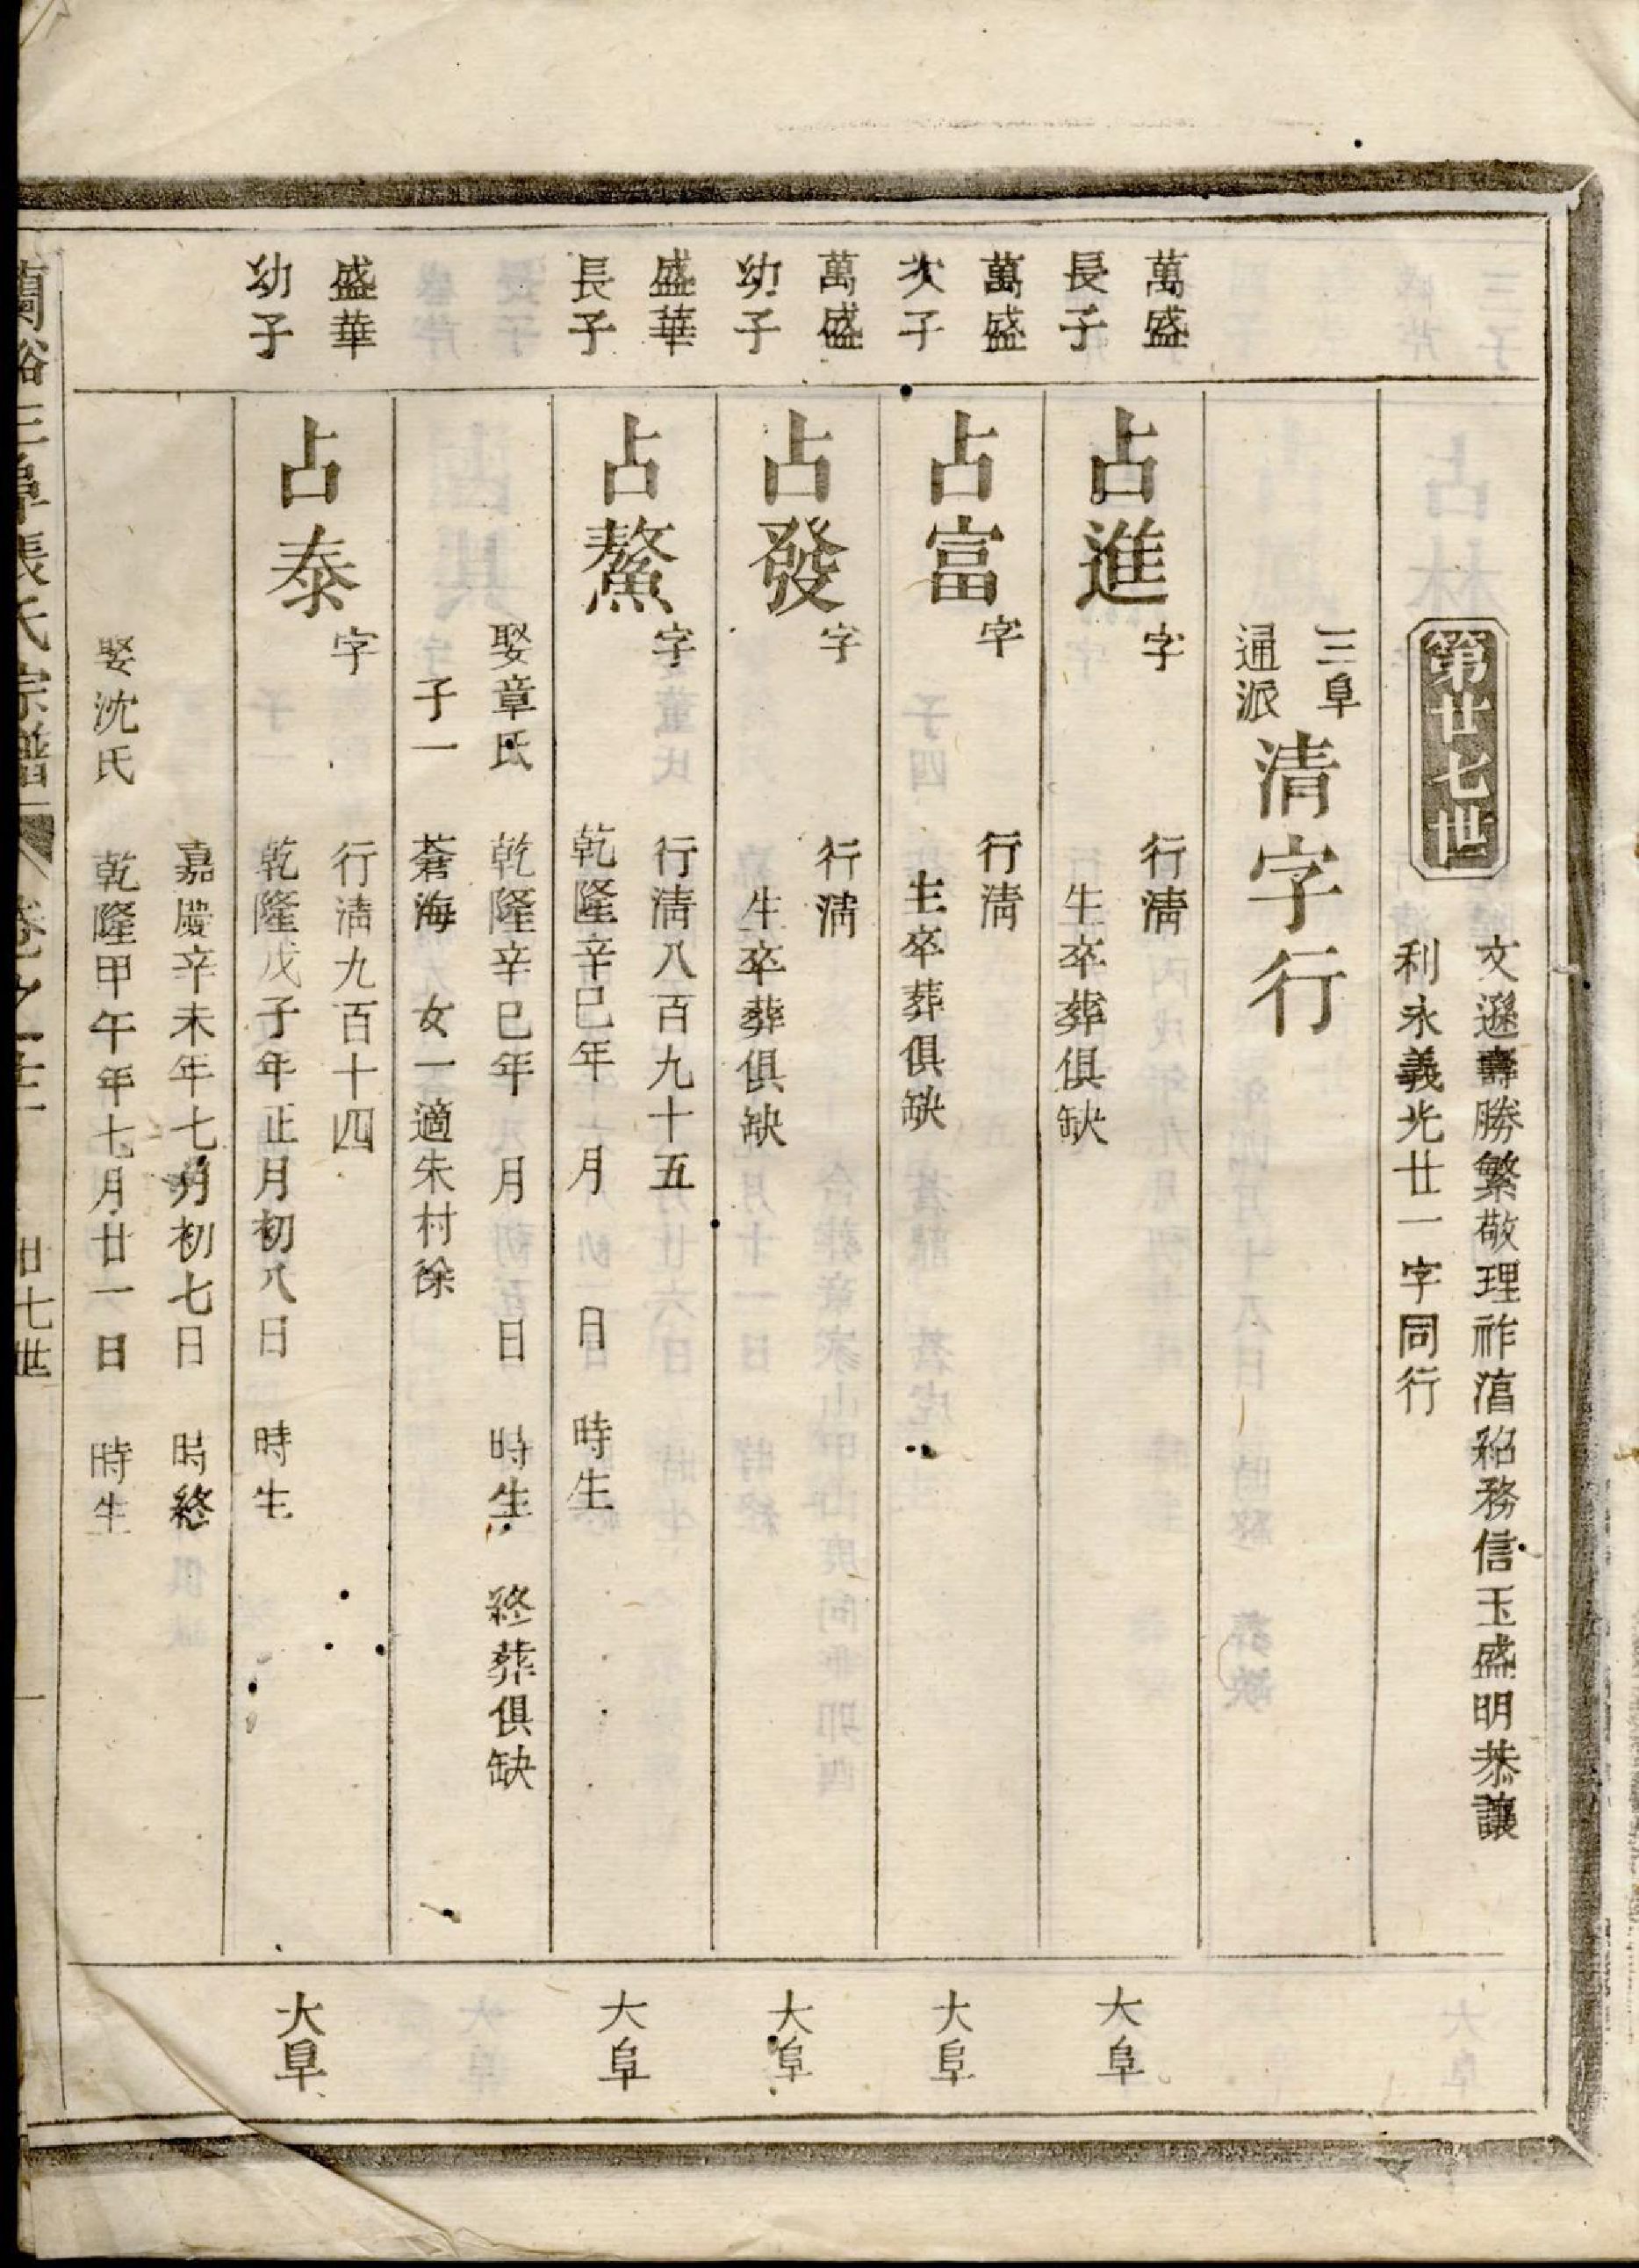 第廿七世
文遜壽勝繁敬理祚湻紹務信玉盛明恭讓
利永義光廿一字同行
三阜
通派
清字行
萬盛
長子
占進
字 行淸
生卒葬俱缺
大阜
萬盛
次子
占富
字 行淸
生卒葬俱缺
大阜
萬盛
幼子
占發
字 行淸
生卒葬俱缺
大阜
盛華
長子
占鰲
字 行淸八百九十五
乾隆辛巳年 月 日 時生
大阜
娶章氏 乾隆辛巳年 月 日 時生 終葬俱缺
子一 蒼海 女一適朱村徐
盛華
幼子
占泰
字 行淸九百十四
乾隆戊子年正月初八日 時生
大阜
嘉慶辛未年七月初七日 時終
娶沈氏 乾隆甲午年七月廿一日 時生
張氏宗譜
廿七世
一